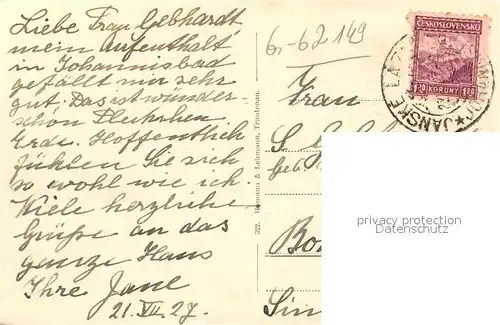 Liebe Frau Gebhardt
mein Aufenthalt
in Johannisbad
gefällt mir sehr
gut. Das ist wunder-
schön Fleckchen
Erde. Hoffentlich
fühlen Sie sich
so wohl wie ich.
Viele herzliche
Grüße an das
ganze Haus
Ihre Jane
21. VII. 27.
222. Hermann & Lehmann, Trautenau.
6.-62 149
ČESKOSLOVENSKO
1'20 KORUNY 1'20
JANSKÉ LÁZNĚ
Frau
geb.
Bo
Sin
privacy protection
Datenschutz